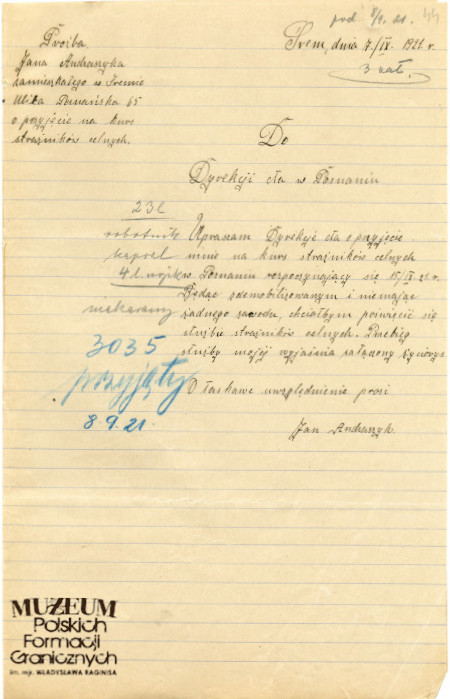 pod 8/9. 21. 44
Śrem, dnia 7./IX. 1921. r.
3 zał.
Prośba
Jana Andraszyka
zamieszkałego w Śremie
Ulica Poznańska 65
o przyjęcie na kurs
strażników celnych.
Do
Dyrekcji cła w Poznaniu
23 l
robotnik
kapral
4 l. wojsk
niekarany
Upraszam Dyrekcję cła o przyjęcie
mnie na kurs strażników celnych
w Poznaniu rozpoczynający się 15/IX. 21. r.
Będąc zdemobilizowanym i niemając
żadnego zawodu, chciałbym poświęcić się
służbie strażników celnych. Przebieg
służby mojej wyjaśnia załączony życiorys.
O łaskawe uwzględnienie prosi
Jan Andraszyk.
3035
przyjęty
8.9.21.
MUZEUM
Polskich
Formacji
Granicznych
im. mjr. WŁADYSŁAWA RAGINISA